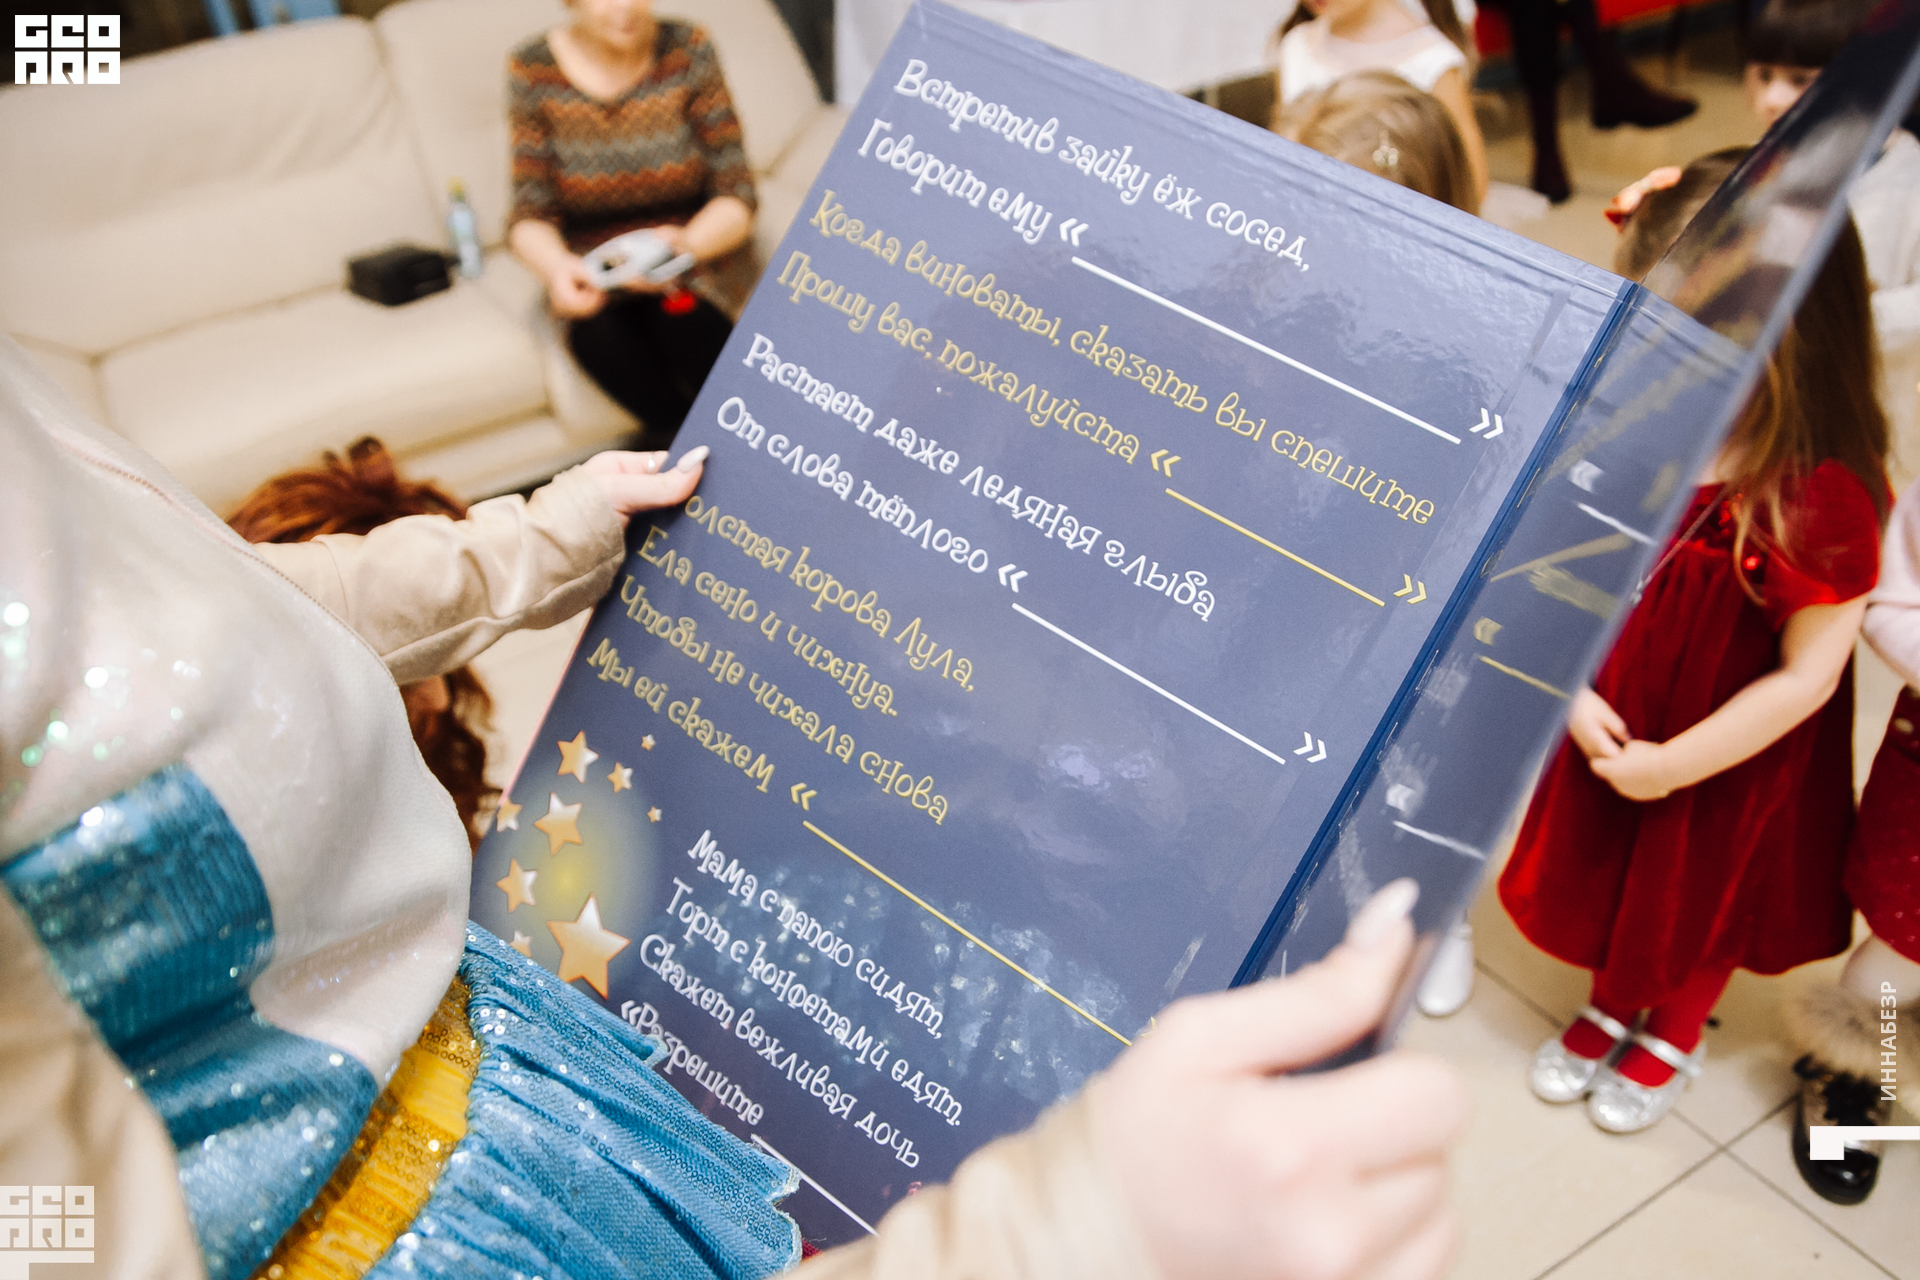 GEO
PRO
Встретив зайку ёж сосед,
Говорит ему «__________»
Когда виноваты, сказать вы спешите
Прошу вас, пожалуйста «__________»
Растает даже ледяная глыба
От слова тёплого «__________»
олстая корова Лула,
Ела сено и чихнула..
Чтобы не чихала снова
Мы ей скажем «__________
Мама с папою сидят,
Торт с конфетами едят.
Скажет вежливая дочь
«Разрешите __________
ИННАБЕЗР
GEO
PRO